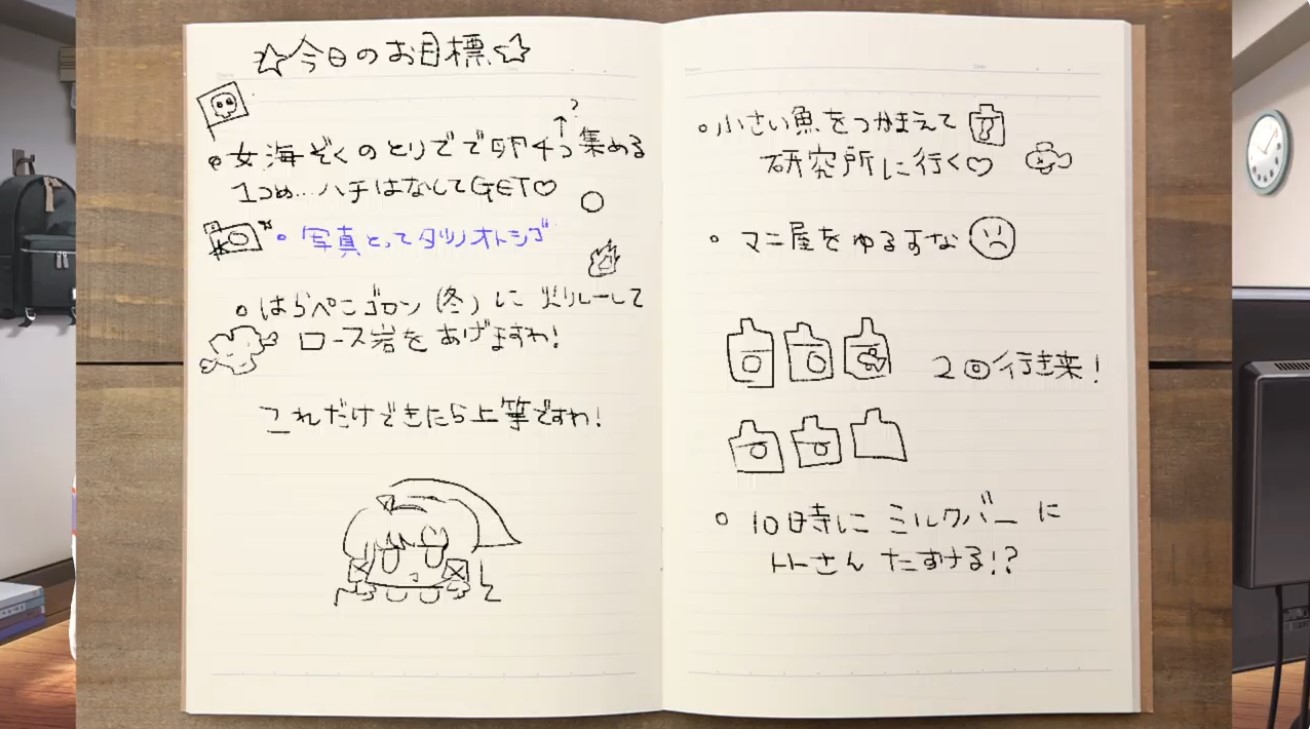 ☆今日のお目標☆
?
↑
女海ぞくのとりでで卵4つ集める
1つめ…ハチはなしてGET♡
写真とってタツノオトシゴ
はらぺこゴロン(冬)に火リレーして
ロース岩をあげますわ!
これだけできたら上等ですわ!
小さい魚をつかまえて
研究所に行く♡
マニ屋をゆるすな
2回行き来!
10時にミルクバーに
トトさんたすける!?